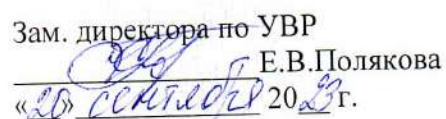 Зам. директора по УВР
Е.В.Полякова
«20» сентября 2023 г.